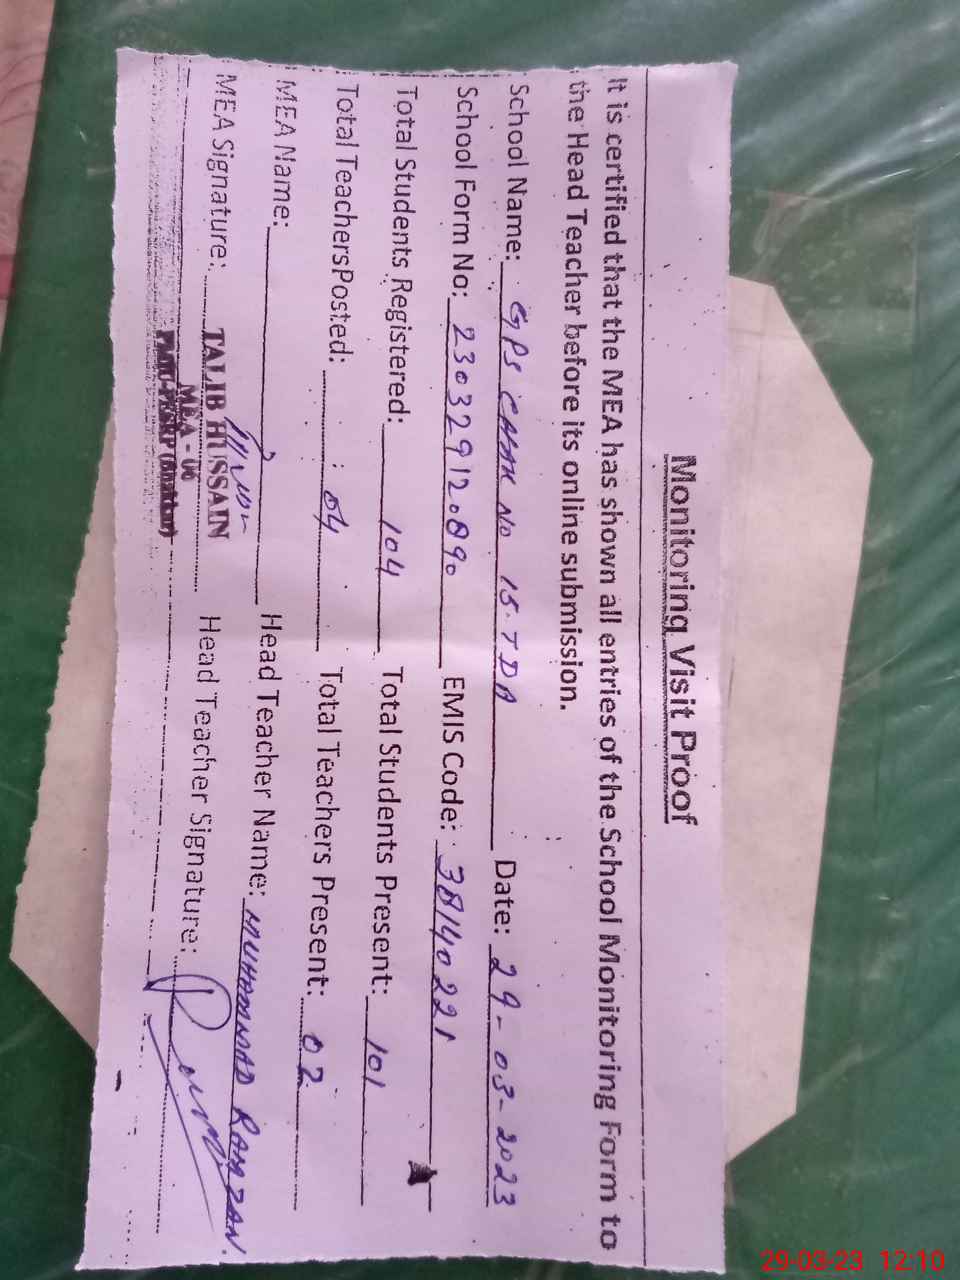 Monitoring Visit Proof
It is certified that the MEA has shown all entries of the School Monitoring Form to
the Head Teacher before its online submission.
School Name: GPS CHAK NO 15.TDA Date: 29-03-2023
School Form No: 230329120890 EMIS Code: 38140221
Total Students Registered: 104 Total Students Present: 101
Total TeachersPosted: 04 Total Teachers Present: 02
MEA Name: Head Teacher Name: MUHAMMAD RAMZAN.
MEA Signature: TALIB HUSSAIN Head Teacher Signature:
MEA - 06
29-03-23 12:10